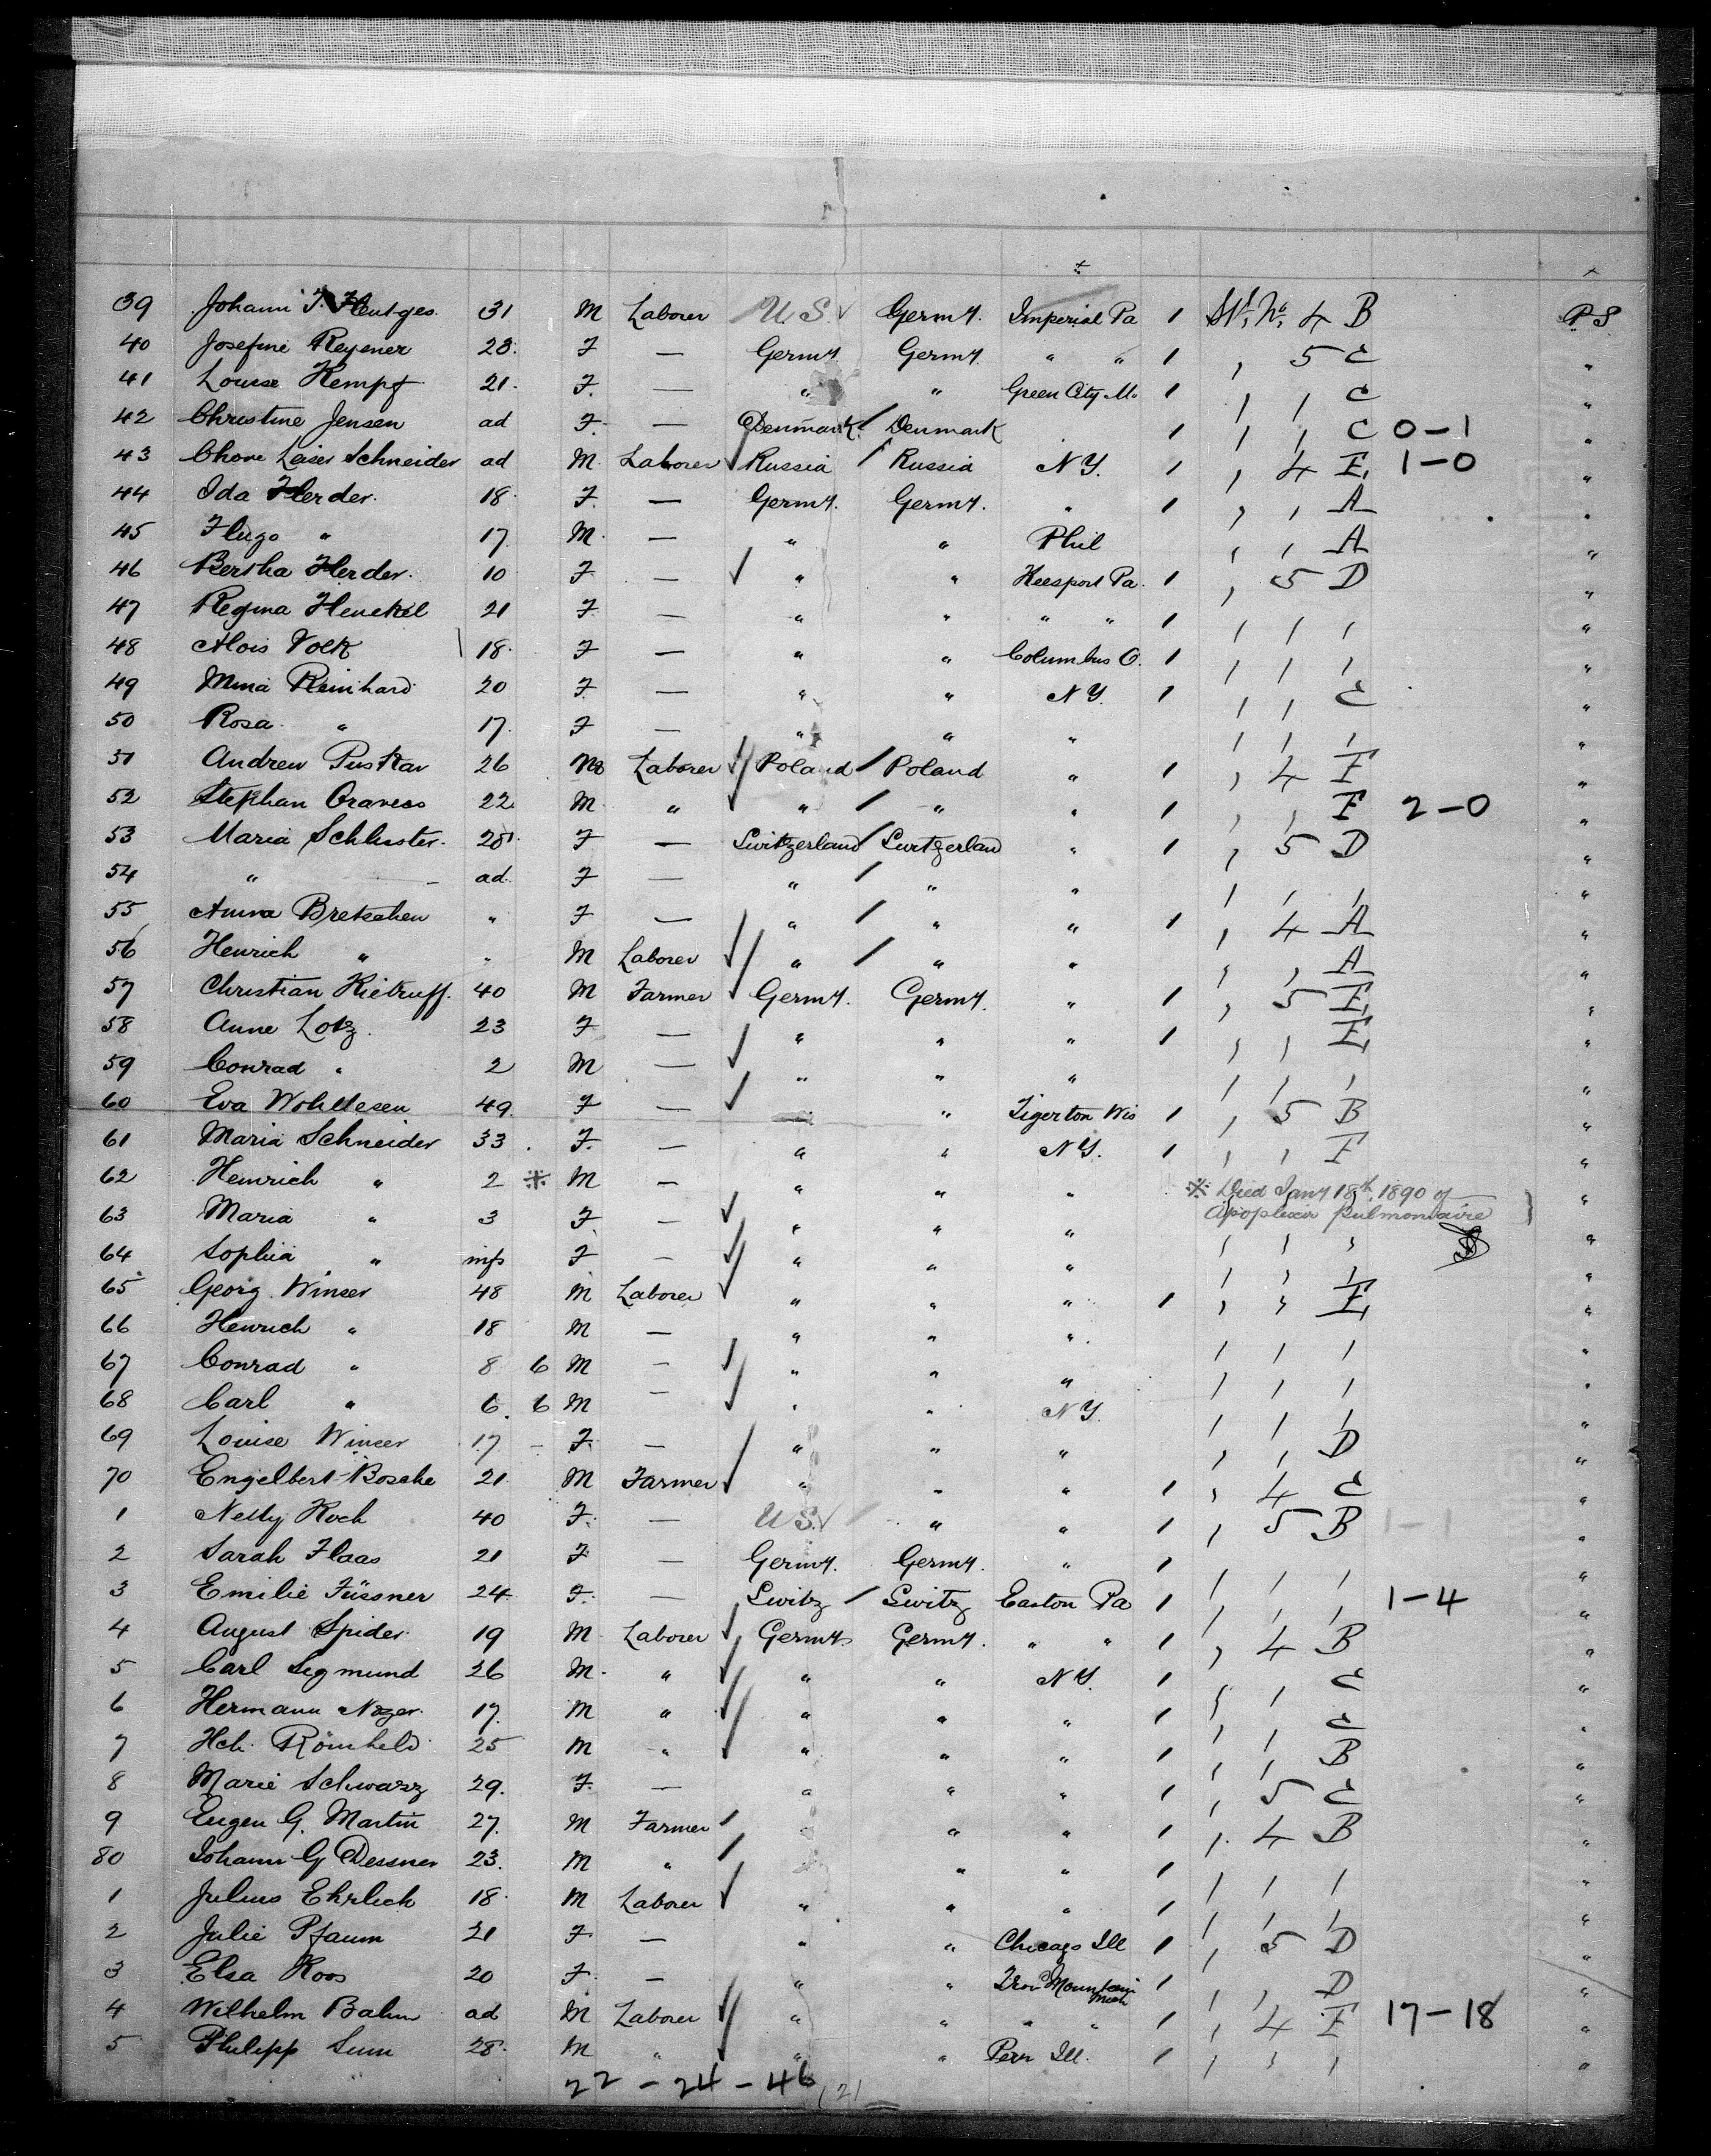 39 Johann J. Hentges. 31 M Laborer U.S. Germy. Imperial Pa 1 St. No. 4 B P S
40 Josefine Regener 23. F — Germy. Germy. " " 1 , 5 C "
41 Louise Kempf 21. F. — " " Green City Mo 1 , , C "
42 Christine Jensen ad F. — Denmark. Denmark 1 , , C 0-1 "
43 Leiser Schneider ad M. Laborer Russia Russia N.Y. 1 , 4 E 1-0 "
44 Ida Herder. 18 F. — Germy. Germy. " 1 , , A "
45 Hugo " 17 M. — " " Phil , , A "
46 Bertha Herder. 10 F — " " Keesport Pa. 1 , 5 D "
47 Regina Henckel 21 F — " " " " 1 , , , "
48 Alois Volk 18. F — " " Columbus O. 1 , , , "
49 Mina Reinhard 20 F — " " N.Y. 1 , , C "
50 Rosa " 17. F — " " " , , , "
51 Andrew Puskar 26 M Laborer Poland Poland " 1 , 4 F "
52 Stephan 22. M " " " " 1 , , F 2-0 "
53 Maria Schluster. 28 F — Switzerland Switzerland " 1 , 5 D "
54 " ad. F — " " " , , , "
55 Anna Bretschen " F — " " " 1 , 4 A "
56 Henrich " " M Laborer " " " , , A "
57 Christian Kietruff. 40 M Farmer Germy. Germy. " 1 , 5 E "
58 Anne Lotz. 23 F — " " " 1 , , E "
59 Conrad " 2 M — " " " , , , "
60 Eva 49. F — " Tigerton Wis 1 , 5 B "
61 Maria Schneider 33. F. — " " N.Y. 1 , , F "
62 Heinrich " 2 ※ M — " " " ※ Died Jany 18th, 1890 of "
63 Maria " 3 F. — " " " Apoplexia pulmonaire "
64 Sophia " inf F — " " " , , , "
65 Georg Winser 48 M Laborer " " " 1 , , E "
66 Henrich " 18 M — " " " , , , "
67 Conrad " 8 6 M — " " " , , , "
68 Carl " 6. 6 M — " " N.Y. , , , "
69 Louise Winser 17 - F. — " " " , , D "
70 Engelbert Bosche 21. M Farmer " " " 1 , 4 C "
1 Nelly Koch 40 F. — U.S. " " 1 , 5 B 1-1 "
2 Sarah Haas 21 F — Germy. Germy. " 1 , , , "
3 Emilie Füssner 24. F. — Switz Switz Easton Pa 1 , , , 1-4 "
4 August Spider. 19 M Laborer Germy. Germy. " " 1 , 4 B "
5 Carl Sigmund 26 M. " " " N.Y. 1 , , C "
6 Hermann Nozer. 17. M " " " " 1 , , C "
7 Hch. Römheld 25 M " " " " 1 , , B "
8 Marie Schwarz 29. F. — " " " 1 , 5 C "
9 Eugen G. Martin 27. M Farmer " " " 1 , 4 B "
80 Johann G Dessner 23. M " " " 1 , , , "
1 Julius Ehrlich 18. M Laborer " " " 1 , , , "
2 Julie Pfaum 21 F — " " Chicago Ill 1 , 5 D "
3 Elsa Koos 20 F. — " " Iron Mountain Mich 1 , , D "
4 Wilhelm Bahn ad M Laborer " " " " 1 , 4 F 17-18 "
5 Philipp Sum 28. M " " " Peru Ill. 1 , , , "
22 - 24 - 46